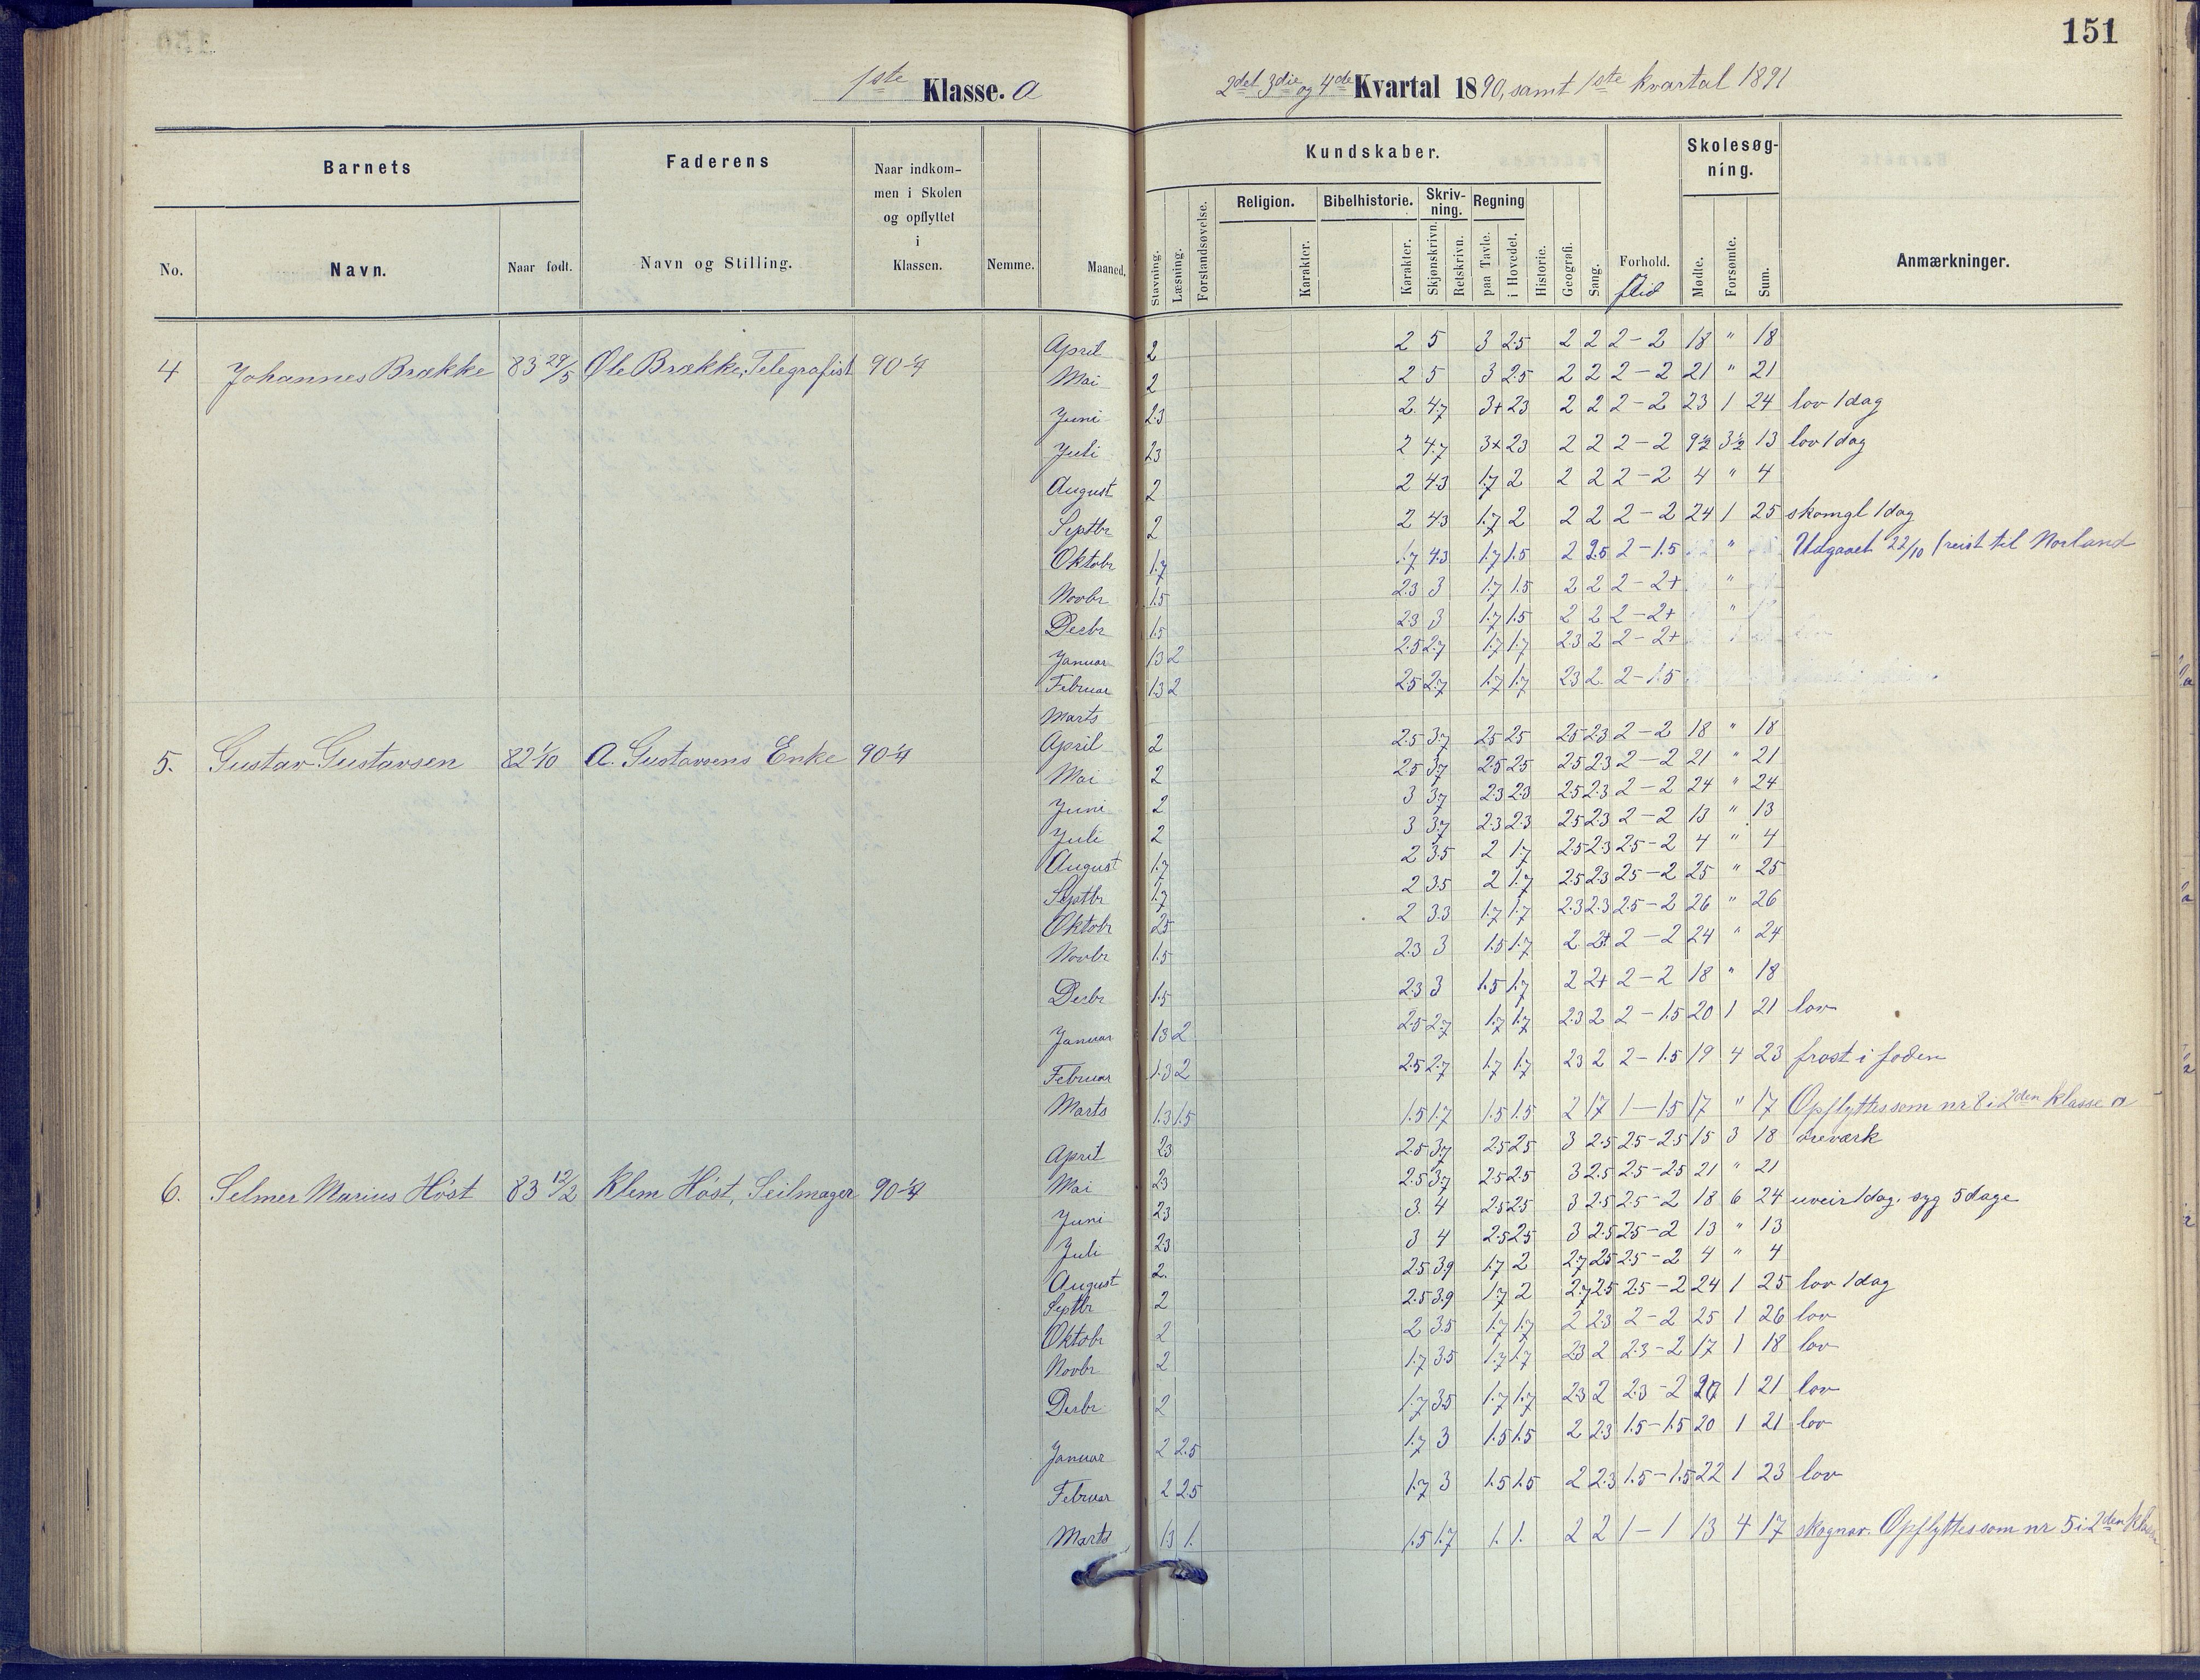 151
1ste Klasse. a
2det 3die og 4de Kvartal 1890, samt 1ste kvartal 1891
Barnets
Faderens
Naar indkom-
men i Skolen
og opflyttet
i
Klassen.
No.
Navn.
Naar født.
Navn og Stilling.
Nemme.
Maaned.
Kundskaber.
Skolesøg-
ning.
Stavning.
Læsning.
Forstandsøvelse.
Religion.
Karakter.
Bibelhistorie.
Karakter.
Skriv-
ning.
Skjønskrivn.
Retskrivn.
Regning
paa Tavle.
i Hovedet.
Historie.
Geografi.
Sang.
Forhold.
flid
Mødte.
Forsømte.
Sum.
Anmærkninger.
4 Johannes Brække 83 29/5 Ole Brække, Telegrafist 90 1/4
April 2 2 5 3 2.5 2 2 2-2 18 " 18
Mai 2 2 5 3 2.5 2 2 2-2 21 " 21
Juni 2.3 2 4.7 3+ 2.3 2 2 2-2 23 1 24 lov 1 dag
Juli 2.3 2 4.7 3+ 2.3 2 2 2-2 9½ 3½ 13 lov 1 dag
August 2 2 4.3 1.7 2 2 2 2-2 4 " 4
Septbr 2 2 4.3 1.7 2 2 2 2-2 24 1 25 skomgl 1 dag
Oktobr 1.7 1.7 4.3 1.7 1.5 2 2.5 2-1.5 " Udgaaet 22/10 (reist til Norland
Novbr 1.5 2.3 3 1.7 1.5 2 2 2-2+ "
Decbr 1.5 2.3 3 1.7 1.5 2 2 2-2+ "
Januar 1.3 2 2.5 2.7 1.7 1.7 2.3 2 2-2+
Februar 1.3 2 2.5 2.7 1.7 1.7 2.3 2 2-1.5
Marts
5. Gustav Gustavsen 82 1/10 A. Gustavsens Enke 90 1/4
April 2 2.5 3.7 2.5 2.5 2.5 2.3 2-2 18 " 18
Mai 2 2.5 3.7 2.5 2.5 2.5 2.3 2-2 21 " 21
Juni 2 3 3.7 2.3 2.3 2.5 2.3 2-2 24 " 24
Juli 2 3 3.7 2.3 2.3 2.5 2.3 2-2 13 " 13
August 1.7 2 3.5 2 1.7 2.5 2.3 2.5-2 4 " 4
Septbr 1.7 2 3.5 2 1.7 2.5 2.3 2.5-2 25 " 25
Oktobr 2.5 2 3.3 1.7 1.7 2.3 2.3 2.5-2 26 " 26
Novbr 1.5 2.3 3 1.5 1.7 2 2+ 2-2 24 " 24
Decbr 1.5 2.3 3 1.5 1.7 2 2+ 2-2 18 " 18
Januar 1.3 2 2.5 2.7 1.7 1.7 2.3 2 2-1.5 20 1 21 lov
Februar 1.3 2 2.5 2.7 1.7 1.7 2.3 2 2-1.5 19 4 23 frost i foden
Marts 1.3 1.5 1.5 1.7 1.5 1.5 2 1.7 1-1.5 17 " 17 Opflyttes som nr 8 i 2den klasse a
6. Selmer Marius Høst 83 12/2 Klem Høst, Seilmager 90 1/4
April 2.3 2.5 3.7 2.5 2.5 3 2.5 2.5-2.5 15 3 18 øreværk
Mai 2.3 2.5 3.7 2.5 2.5 3 2.5 2.5-2.5 21 " 21
Juni 2.3 3 4 2.5 2.5 3 2.5 2.5-2 18 6 24 uveir 1 dag. syg 5 dage
Juli 2.3 3 4 2.5 2.5 3 2.5 2.5-2 13 " 13
August 2. 2.5 3.9 1.7 2 2.7 2.5 2.5-2 4 " 4
Septbr 2 2.5 3.9 1.7 2 2.7 2.5 2.5-2 24 1 25 lov 1 dag
Oktobr 2 2 3.5 1.7 1.7 2 2.3 2-2 25 1 26 lov
Novbr 2 1.7 3.5 1.7 1.7 2.3 2 2.3-2 17 1 18 lov
Decbr 2 1.7 3.5 1.7 1.7 2.3 2 2.3-2 20 1 21 lov
Januar 2 2.5 1.7 3 1.5 1.5 2 2.3 1.5-1.5 20 1 21 lov
Februar 2 2.5 1.7 3 1.5 1.5 2 2.3 1.5-1.5 22 1 23 lov
Marts 1.3 1. 1.5 1.7 1. 1. 2 2 1-1 13 4 17 Opflyttes som nr 5 i 2den klasse